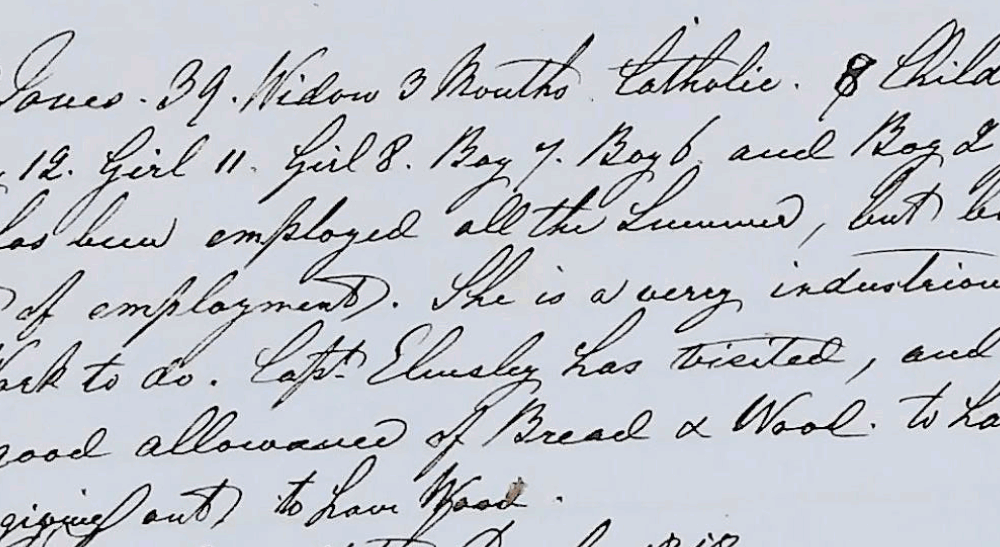 Jones. 39. Widow 3 Months Catholic. 8 Child
12. Girl 11. Girl 8. Boy 7. Boy 6. and Boy 2
has been employed all the Summer, but
of employment. She is a verry industriou
Work to do. Capt. Elmsley has visited, and
good allowance of Bread & Wood. to ha
giving out to have Wood.